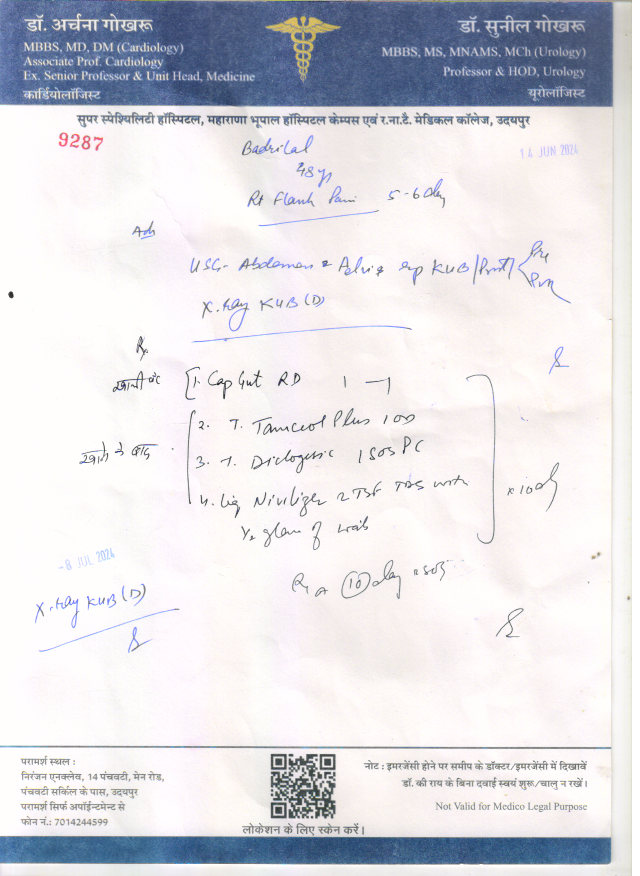 डॉ. अर्चना गोखरू
MBBS, MD, DM (Cardiology)
Associate Prof. Cardiology
Ex. Senior Professor & Unit Head, Medicine
कार्डियोलॉजिस्ट
डॉ. सुनील गोखरू
MBBS, MS, MNAMS, MCh (Urology)
Professor & HOD, Urology
यूरोलॉजिस्ट
सुपर स्पेश्यिलिटी हॉस्पिटल, महाराणा भूपाल हॉस्पिटल केम्पस एवं र.ना.टै. मेडिकल कॉलेज, उदयपुर
9287
Badrilal
14 JUN 2024
48 yr
Rt Flank Pain 5-6 day
Adv
USG- Abdomen & Pelvis exp KUB/Prost/ Pre
X-Ray KUB (D)
Rx
1. Cap Gut RD 1 — 1
2. T. Tamceol Plus 1 OD
खाने के बाद
3. T. Diclogesic 1 SOS PC
4. Liq 2 TSF TDS with
x 10 day
½ glass of
-8 JUL 2024
X-Ray KUB (D)
10 day SOS
परामर्श स्थल :
निरंजन एनक्लेव, 14 पंचवटी, मेन रोड,
पंचवटी सर्किल के पास, उदयपुर
परामर्श सिर्फ अपॉईन्टमेन्ट से
फोन नं.: 7014244599
लोकेशन के लिए स्केन करें।
नोट : इमरजेंसी होने पर समीप के डॉक्टर/इमरजेंसी में दिखावें
डॉ. की राय के बिना दवाई स्वयं शुरू/चालु न रखें।
Not Valid for Medico Legal Purpose